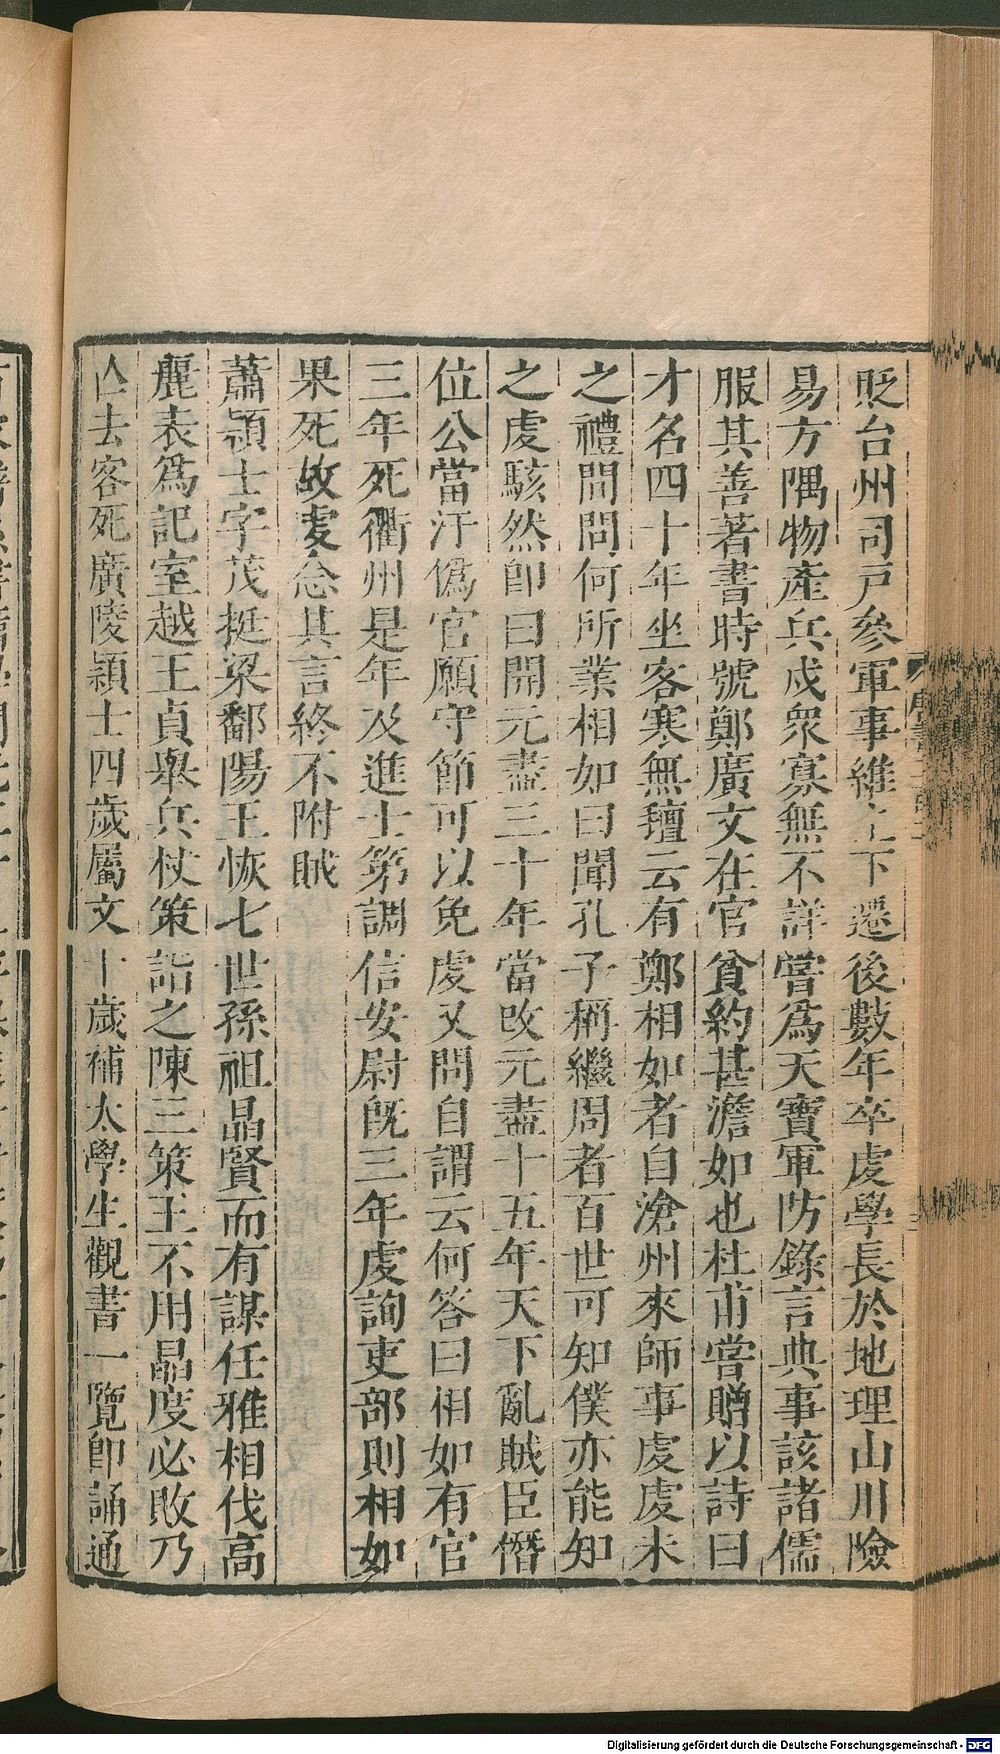 貶台州司戸參軍事維止下遷後數年卒虔學長於地理山川險
易方隅物產兵戍衆寡無不詳嘗爲天寶軍防錄言典事該諸儒
服其善著書時號鄭廣文在官貧約甚澹如也杜甫嘗贈以詩曰
才名四十年坐客寒無氊云有鄭相如者自滄州來師事虔虔未
之禮間問何所業相如曰聞孔子稱繼周者百世可知僕亦能知
之虔駭然卽曰開元盡三十年當改元盡十五年天下亂賊臣僭
位公當汙僞官願守節可以免虔又問自謂云何答曰相如有官
三年死衢州是年及進士第調信安尉旣三年虔詢吏部則相如
果死故虔念其言終不附賊
蕭頴士字茂挺梁鄱陽王恢七世孫祖晶賢而有謀任雅相伐高
麗表爲記室越王貞舉兵杖策詣之陳三策王不用晶度必敗乃
亾去客死廣陵頴士四歲屬文十歲補太學生觀書一覽卽誦通
Digitalisierung gefördert durch die Deutsche Forschungsgemeinschaft - DFG